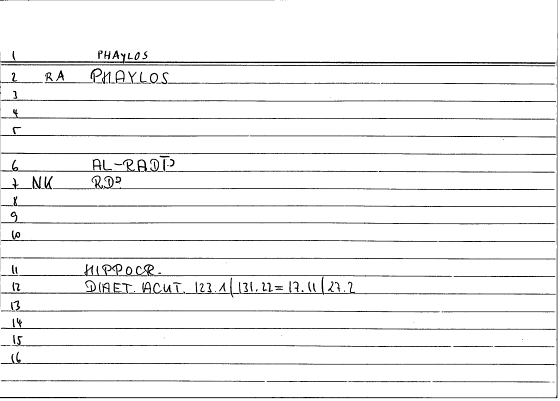 1 PHAYLOS
2 RA PHAYLOS
3
4
5
6 AL-RADĪʾ
7 NK RDʾ
8
9
10
11 HIPPOCR.
12 DIAET. ACUT. 123.1 | 131.22 = 17.11 | 27.2
13
14
15
16